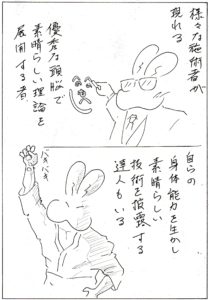 様々な施術者が
現れる
優秀な頭脳で
素晴らしい理論を
展開する者
自らの
身体能力を生かし
素晴らしい
技術を披露する
達人もいる
バキバキ